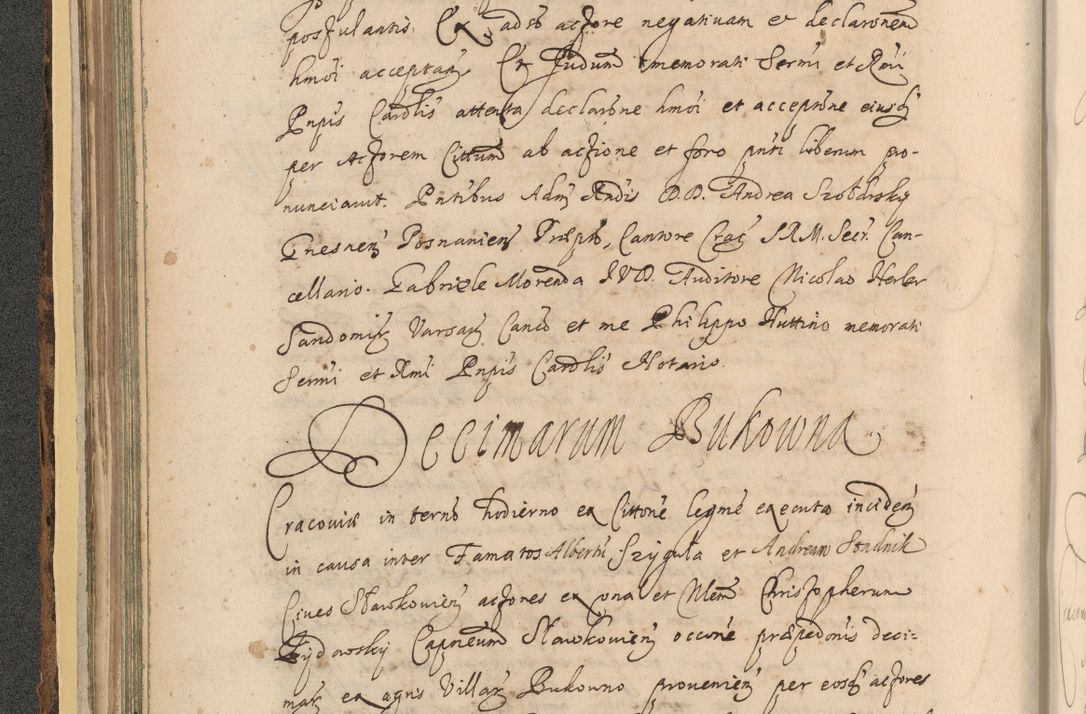 postulantis. Ex adso actore negativam et declaronem
hmoi acceptan Et Judum memorati Sermi et Rmi
Pnpis Cardlis attenta declarone hmoi et acceptone eiusd
per Actorem Cittum ab actione et foro pnti liberum pro-
nunciavit. Pntibus Adm Rndis DD. Andrea Szoldrsky
Gnesnen Posnanien Præpto, Cantore Crac S.R.M. Secr. Can-
cellario. Gabriele Morenda IVD. Auditore Nicolao Herber
Sandomir Varsav Canco et me Philippo Huttino memorati
Sermi et Rmi Pnpis Cardlis Notario.
Decimarum Bukowna
Cracoviæ in termo hodierno ex Cittone legme executa inciden
in causa inter Famatos Alberti Szygula et Andream Stadnik
Cives Slawkovien actores ex una et Nlem Christopherum
Zydowsky Capneum Slawkovien occone præpedonis deci-
mar ex agris Villæ Bukowno provenien per eosd actores